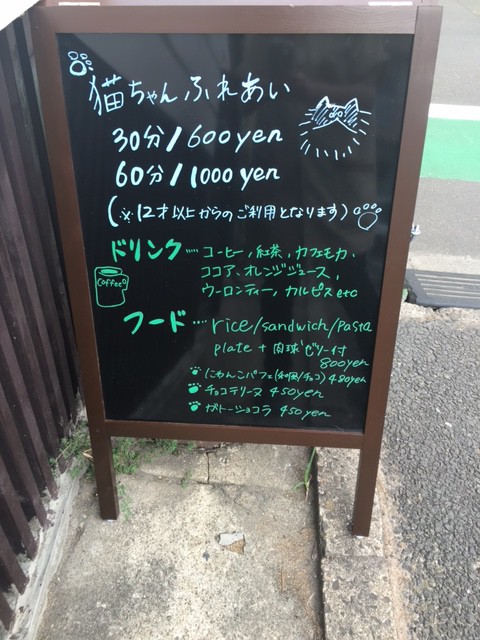 猫ちゃんふれあい
30分/600yen
60分/1000yen
(※12才以上からのご利用となります)
ドリンク…‥コーヒー,紅茶,カフェモカ,
ココア,オレンジジュース,
ウーロンティー,カルピスetc
Coffee
フード…‥rice/sandwich/pasta
plate+肉球ゼリー付
800yen
にゃんこパフェ(和風/チョコ)480yen
チョコテリーヌ 450yen
ガトーショコラ 450yen